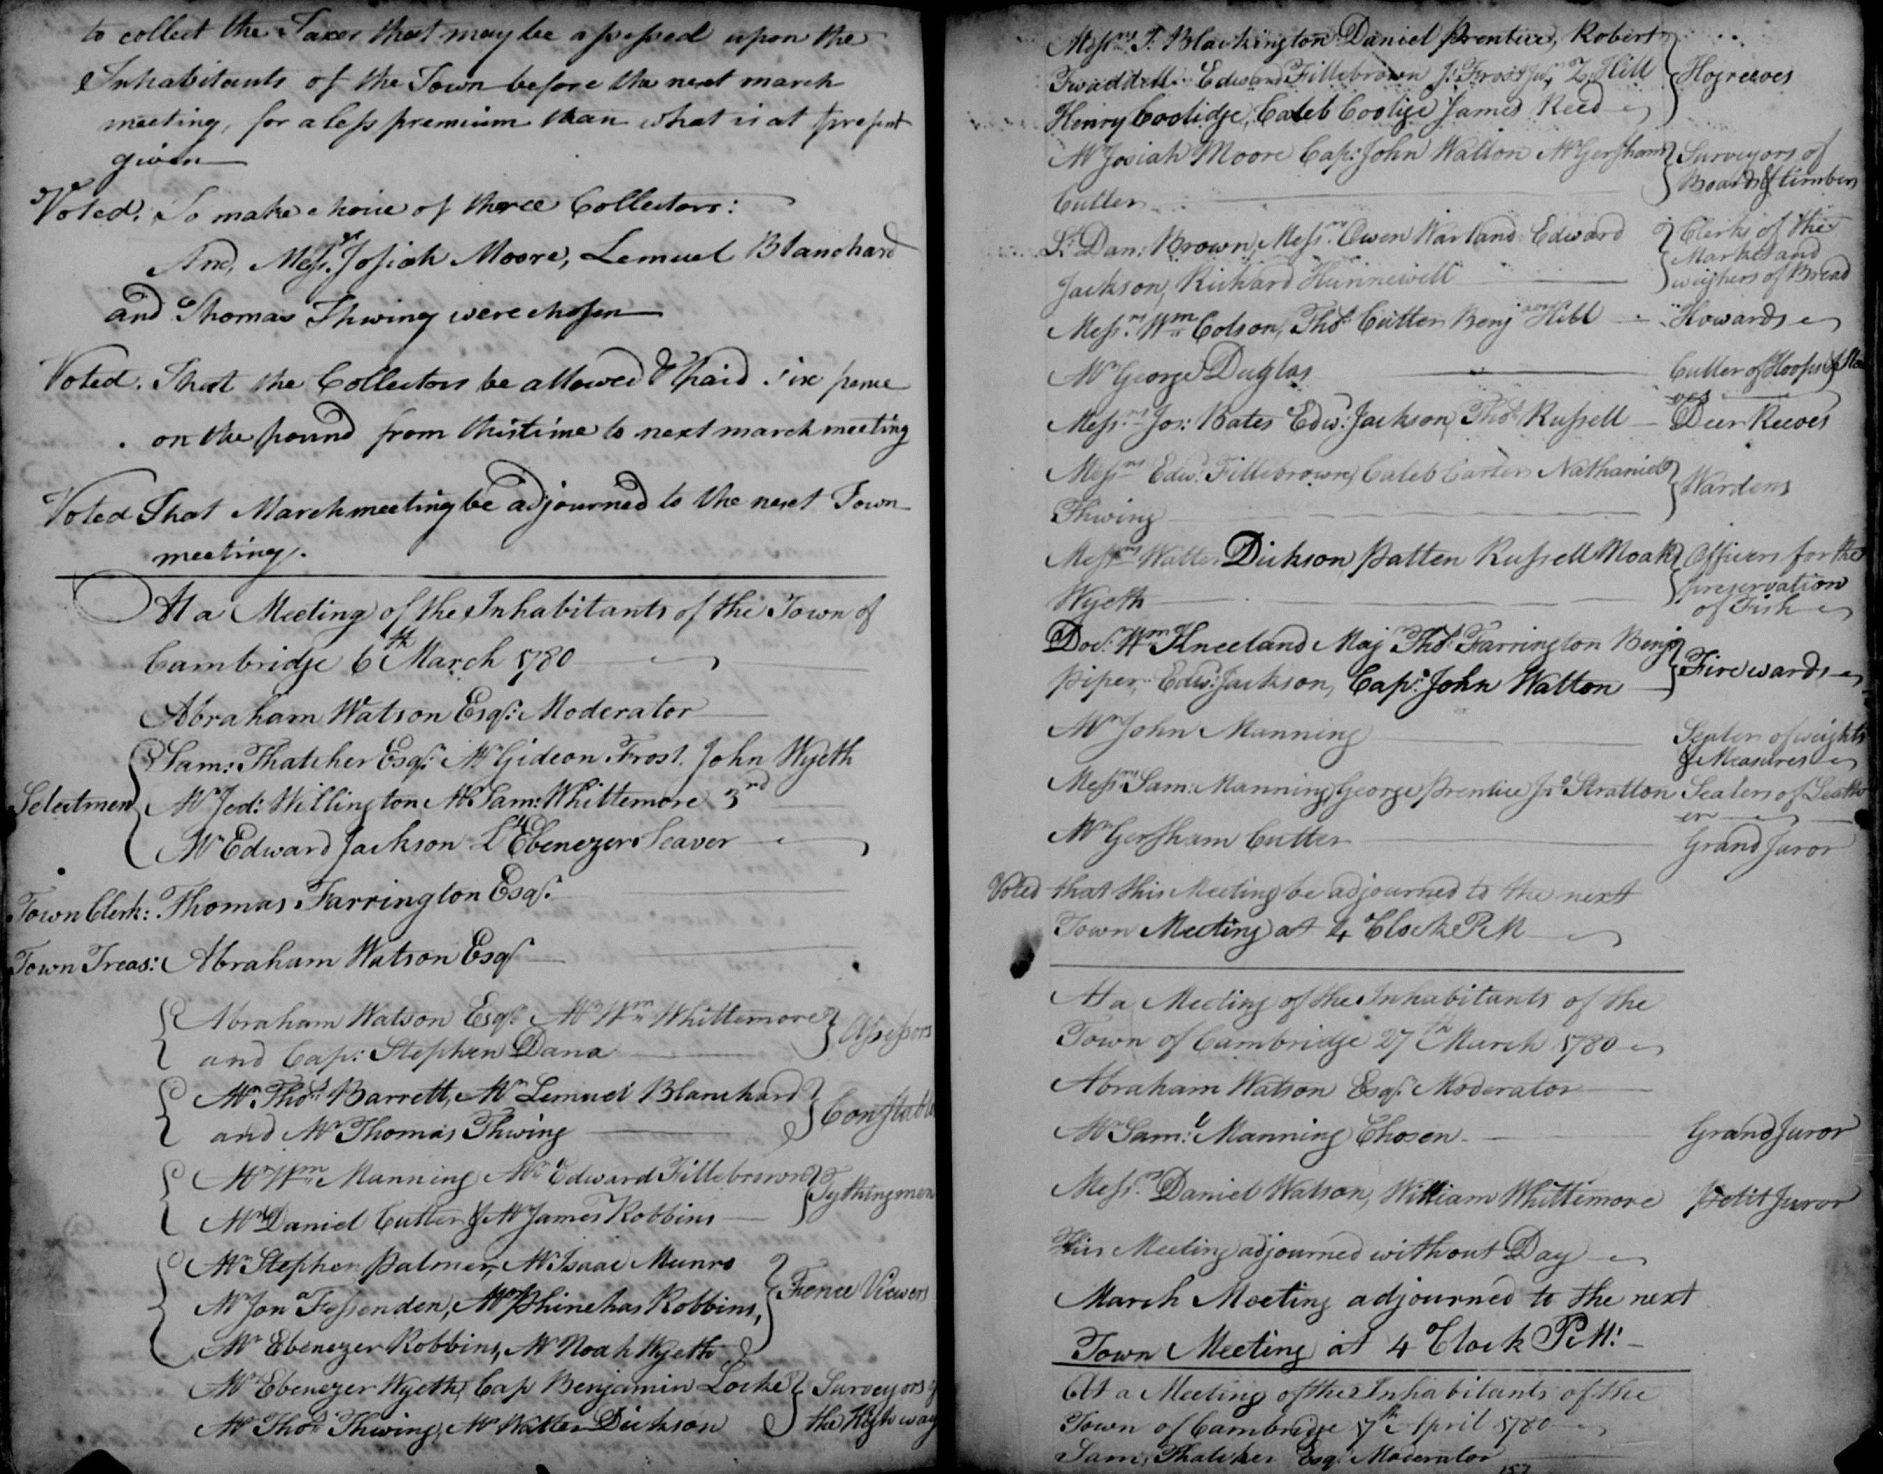 to collect the Taxes that may be assessed upon the
Inhabitants of the Town before the next march
meeting, for a less premium than what is at present
given
Voted, To make choice of three Collectors:
And, Messrs. Josiah Moore, Lemuel Blanchard
and Thomas Thwing were chosen
Voted. That the Collectors be allowed & paid six pence
on the pound from this time to next march meeting
Voted That March meeting be adjourned to the next Town
meeting.
At a Meeting of the Inhabitants of the Town of
Cambridge 6th March 1780
Abraham Watson Esqr. Moderator
Selectmen
Sam: Thatcher Esqr. Mr Gideon Frost. John Wyeth
Mr Jed: Willington Mr Sam: Whittemore 3rd
Mr Edward Jackson Lt Ebenezer Seaver
Town Clerk: Thomas Farrington Esqr.
Town Treas: Abraham Watson Esqr
Abraham Watson Esqr. Mr Wm Whittemore
and Cap: Stephen Dana
Assessors
Mr. Thos Barrett, Mr Lemuel Blanchard
and Mr Thomas Thwing
Constable
Mr Wm Manning Mr Edward Fillebrown
Mr Daniel Cutler & Mr James Robbins
Tythingmen
Mr Stephen Palmer, Mr Isaac Munro
Mr Jona Fessenden, Mr Phinehas Robbins,
Mr Ebenezer Robbins, Mr Noah Wyeth
Fence Viewers
Mr Ebenezer Wyeth, Cap Benjamin Locke
Mr Thos Thwing, Mr Walter Dickson
Surveyors of
the Highway
Messrs T. Blackington Daniel Prentice, Robert
Twaddell Edward Fillebrown J. Frost Jur, Z. Hill
Henry Coolidge, Caleb Coolige James Reed
Hogreeves
Mr Josiah Moore Cap: John Walton Mr Gersham
Cutter
Surveyors of
Boards & timber
Lt Dan: Brown, Messrs Owen Warland Edward
Jackson, Richard Hunnewell
Clerks of the
Market and
weighers of Bread
Messrs Wm Colson, Thos Cutter Benj Hill
Howards
Mr George Duglas
Cutler of Hoops & Sta
ves
Messrs Jos: Bates Edw: Jackson, Thos Russell
Deer Reeves
Messrs Edw: Fillebrown, Caleb Carter Nathaniel
Thwing
Wardens
Messrs Walter Dickson Patten Russell Noah
Wyeth
Officers for the
preservation
of Fish
Docr. Wm Kneeland Maj Thos Farrington Benj
Piper, Edw: Jackson, Cap: John Walton
Firewards
Mr John Manning
Sealer of weights
& Measures
Messrs Sam: Manning George Prentice Jno Stratton
Sealers of Leath
er
Mr Gersham Cutter
Grand Juror
Voted that this Meeting be adjourned to the next
Town Meeting at 4 Clock P.M
At a Meeting of the Inhabitants of the
Town of Cambridge 27th March 1780
Abraham Watson Esqr. Moderator
Mr Saml. Manning Chosen
Grand Juror
Messrs Daniel Watson, William Whittemore
petit Juror
This Meeting adjourned without Day
March Meeting adjourned to the next
Town Meeting at 4 Clock P.M:
At a Meeting of the Inhabitants of the
Town of Cambridge 17th April 1780
Sam: Thatcher Esqr. Moderator
157